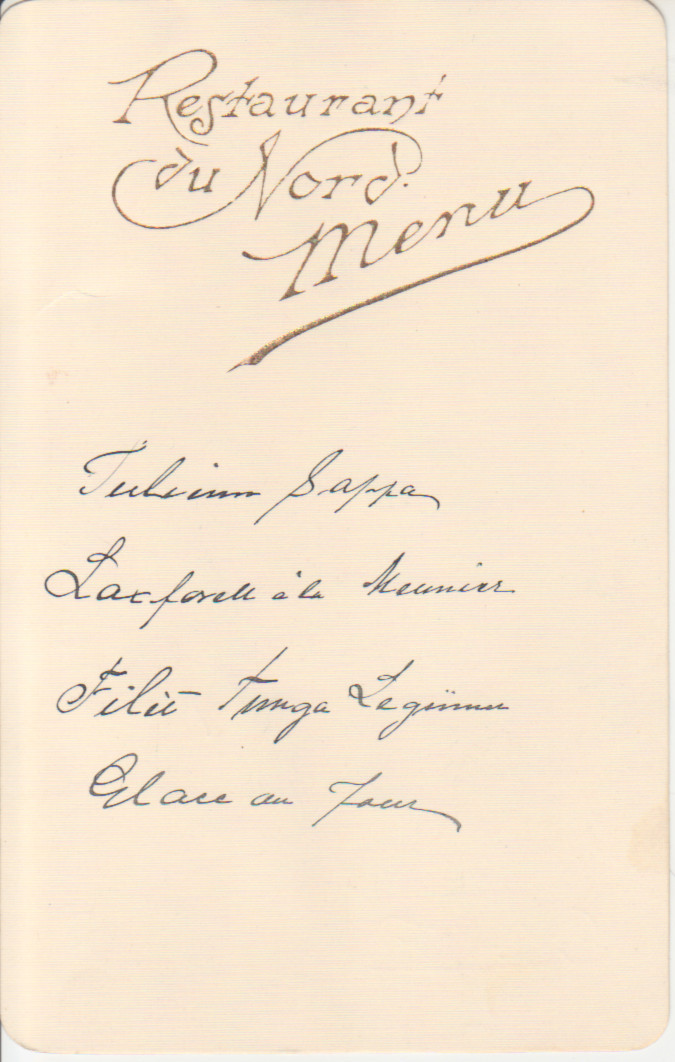 Restaurant
du Nord.
Menu
Julienn Soppa
Laxforell à la Meunier
Filèt Tunga Legümer
Glace au Jour